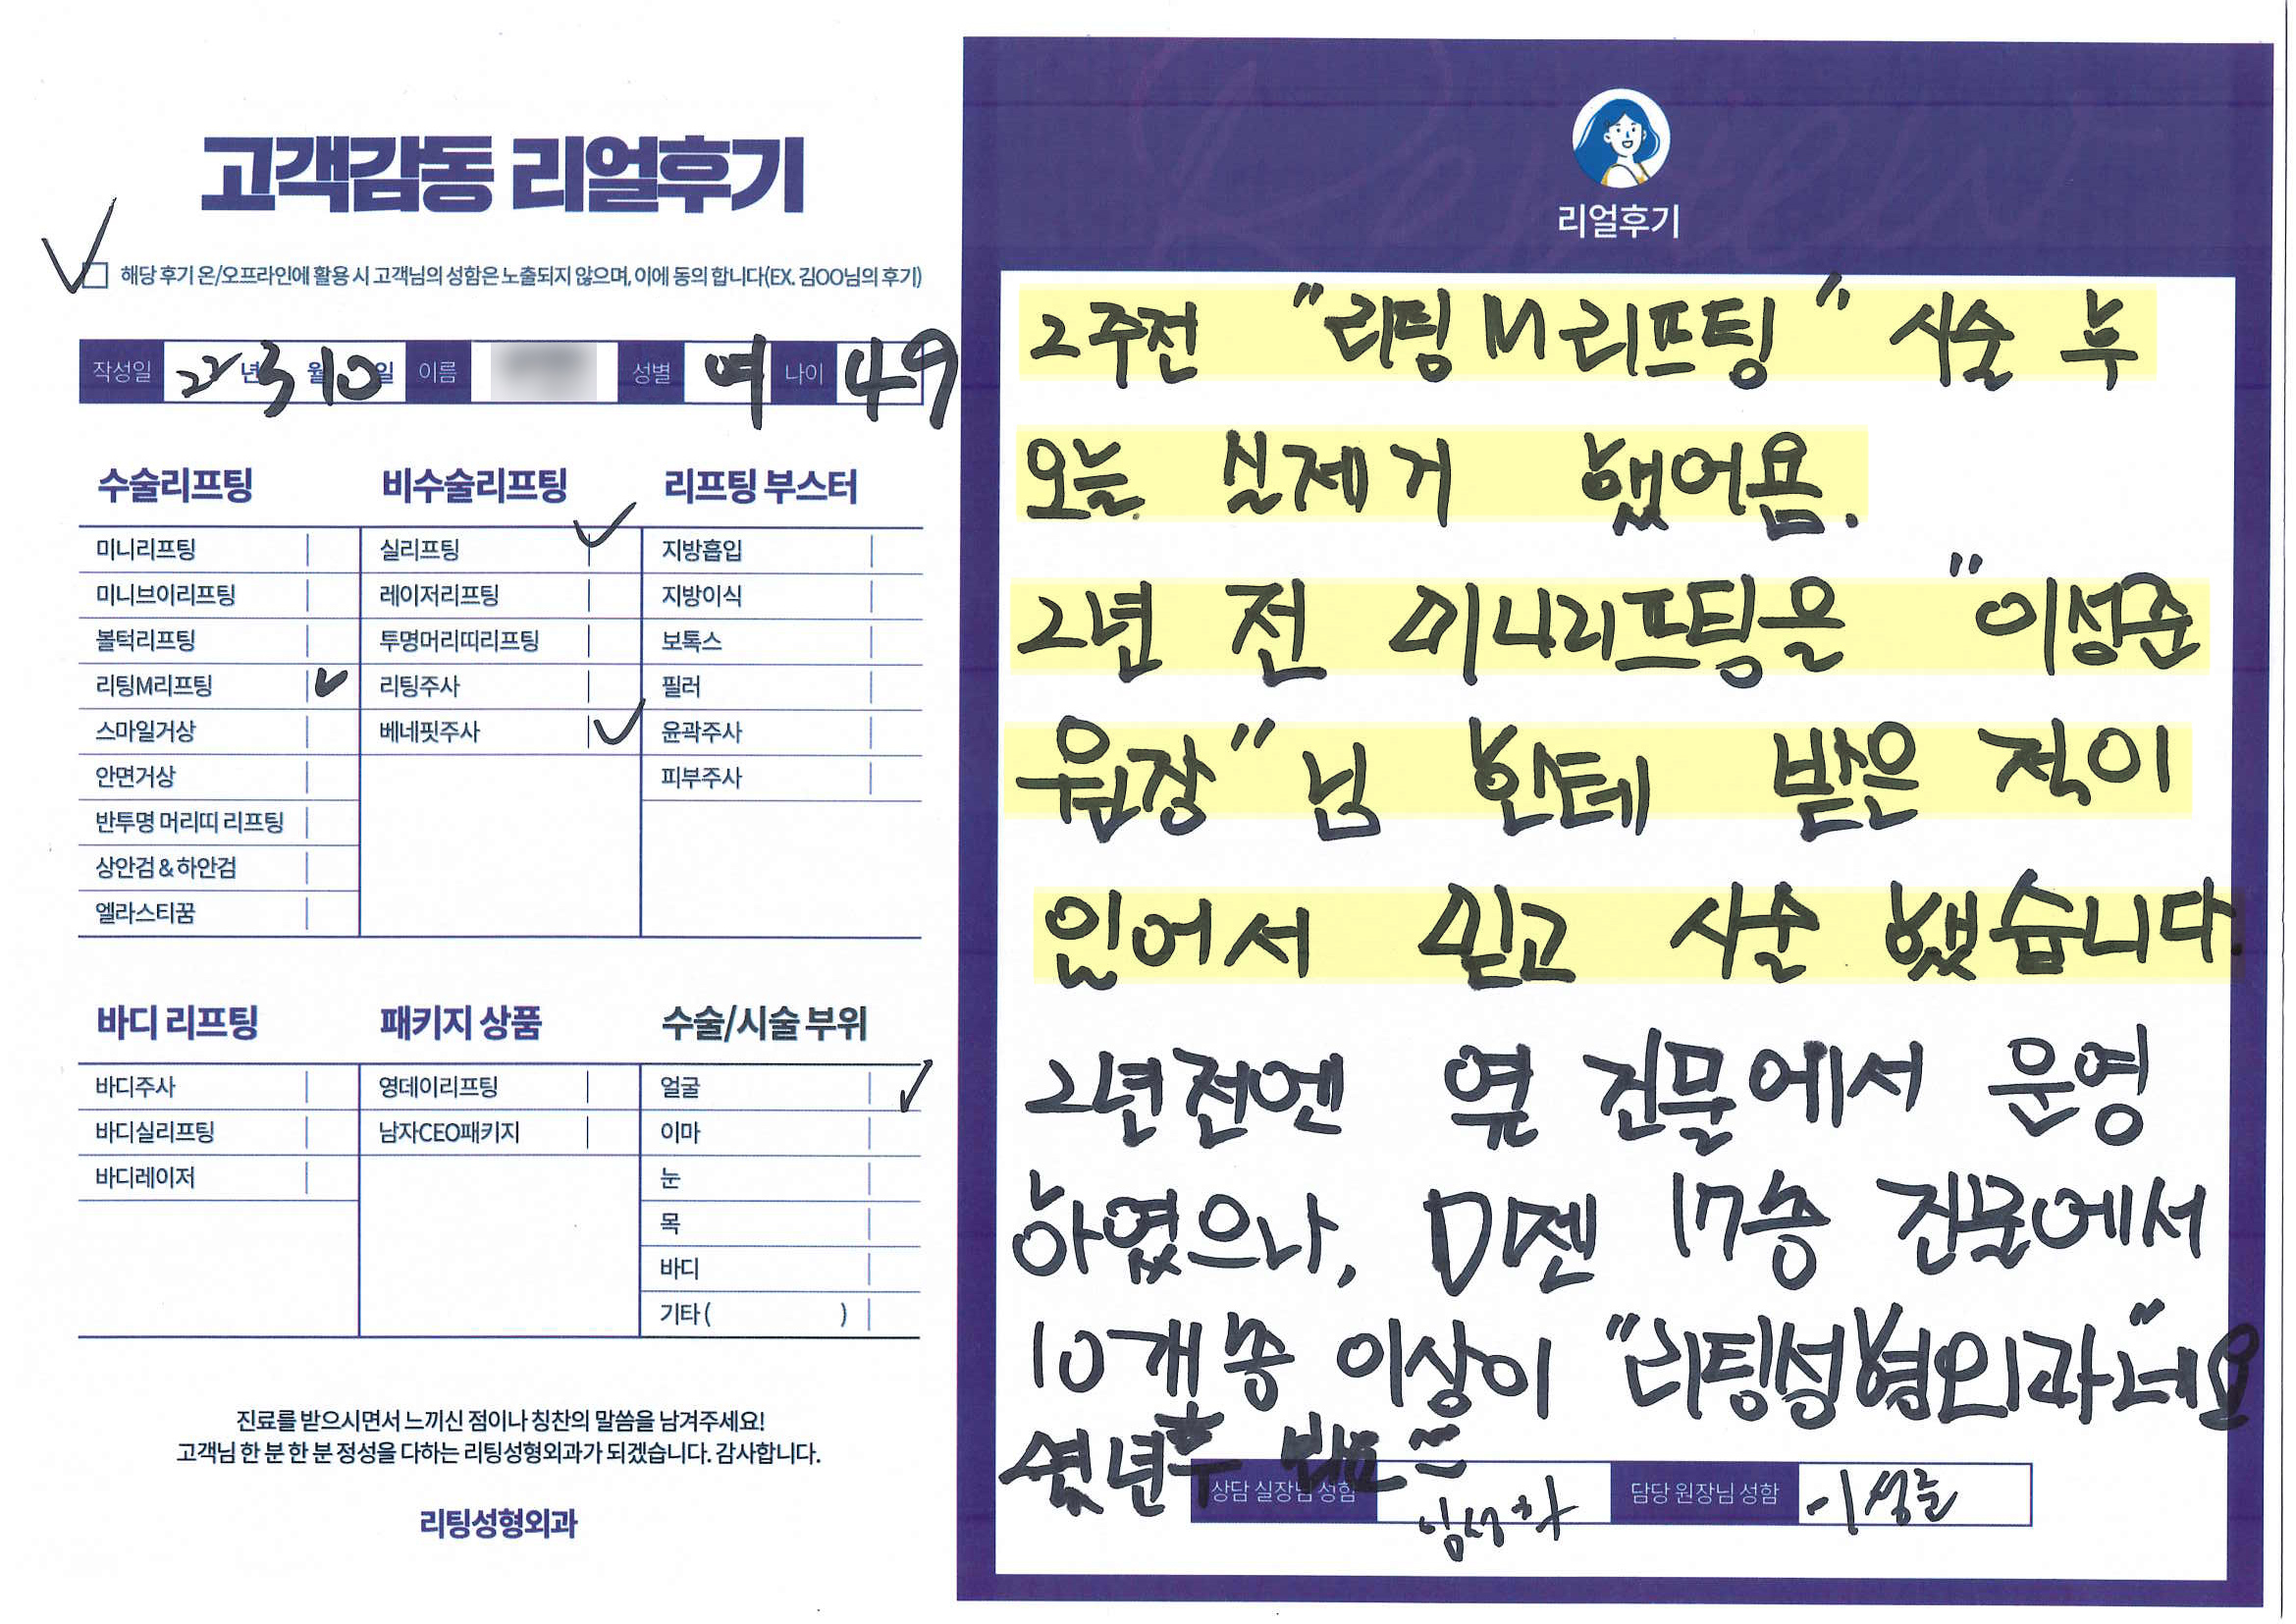 고객감동 리얼후기
해당 후기 온/오프라인에 활용 시 고객님의 성함은 노출되지 않으며, 이에 동의 합니다(EX. 김OO님의 후기)
작성일 22 년 3 월 10 일 이름 성별 여 나이 49
수술리프팅
미니리프팅
미니브이리프팅
볼턱리프팅
리팅M리프팅
스마일거상
안면거상
반투명 머리띠 리프팅
상안검 & 하안검
엘라스티꿈
비수술리프팅
실리프팅
레이저리프팅
투명머리띠리프팅
리팅주사
베네핏주사
리프팅 부스터
지방흡입
지방이식
보톡스
필러
윤곽주사
피부주사
바디 리프팅
바디주사
바디실리프팅
바디레이저
패키지 상품
영데이리프팅
남자CEO패키지
수술/시술 부위
얼굴
이마
눈
목
바디
기타 ( )
진료를 받으시면서 느끼신 점이나 칭찬의 말씀을 남겨주세요!
고객님 한 분 한 분 정성을 다하는 리팅성형외과가 되겠습니다. 감사합니다.
리팅성형외과
리얼후기
2주전 "리팅 M 리프팅" 시술 후
오늘 실제거 했어욤.
2년 전 미니리프팅을 "이성준
원장"님 한테 받은 적이
있어서 믿고 시술 했습니다.
2년전엔 옆 건물에서 운영
하였으나, 이젠 17층 건물에서
10개층 이상이 "리팅성형외과"네요
몇년후 봬요~
상담 실장님 성함
담당 원장님 성함 이성준